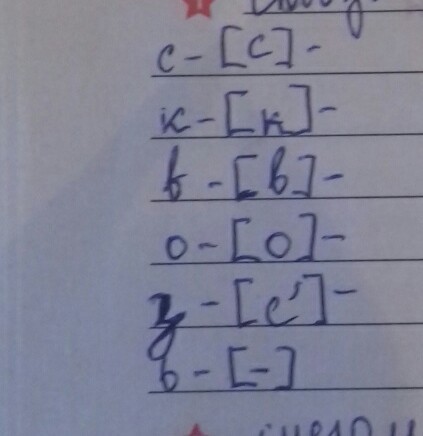 с - [с] -
к - [к] -
в - [в] -
о - [о] -
з - [с'] -
ь - [-]